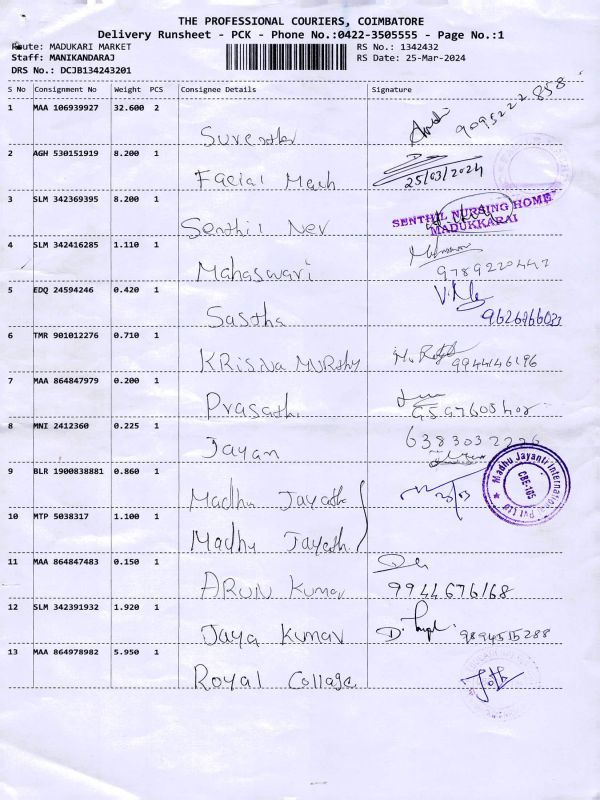 THE PROFESSIONAL COURIERS, COIMBATORE
Delivery Runsheet - PCK - Phone No.:0422-3505555 - Page No.:1
Route: MADUKARI MARKET RS No.: 1342432
Staff: MANIKANDARAJ RS Date: 25-Mar-2024
DRS No.: DCJB134243201
S No Consignment No Weight PCS Consignee Details Signature
1 MAA 106939927 32.600 2
9095222858
2 AGH 530151919 8.200 1 Facial Mech
25/03/2024
3 SLM 342369395 8.200 1 Senthil Nev
SENTHIL NURSING HOME
MADUKKARAI
4 SLM 342416285 1.110 1 Mahaswari
5 EDQ 24594246 0.420 1 Sastha
6 TMR 901012276 0.710 1 KRiSNa MURthy
9944146196
7 MAA 864847979 0.200 1 Prasath
8 MNI 2412360 0.225 1 Jayan
6383032226
9 BLR 1900838881 0.860 1 Madhu
Madhu Jayanti International Pvt Ltd
CBE-105
10 MTP 5038317 1.100 1 Madhu
11 MAA 864847483 0.150 1 ARUN Kumar
9944676168
12 SLM 342391932 1.920 1 Jaya Kumar
9894515288
13 MAA 864978982 5.950 1 Royal Collage